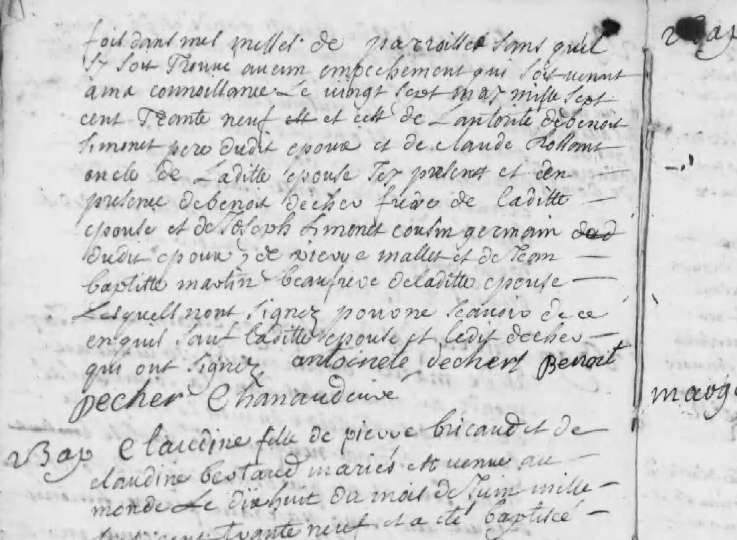 fois dans mes messes de parroisse sans quil
sy soit Trouvé aucun empechement qui soit venut
a ma connoissance Le vingt sept may mille sept
cent Trante neuf et de Lautorite de benoit
Simonet pere dudit epoux et de claude
oncle de Laditte epouse Icy presents et en
presence de benoit decher frere de laditte
epouse et de Joseph Simonet cousin germain
dudit epoux, de pierre mallet et de Jean
baptiste martin beaufrere de laditte epouse
Lesquells nont signez pour ne scavoir de ce
enquis sauf laditte epouse et ledit decher
qui ont signez antoinete decher Benoit
Decher Chanaudeuve
Bap Claudine fille de pierre bricaud et de
claudine bertaud mariés est venue au
monde Le dix huit du mois de Juin mille
sept cent trante neuf et a eté baptisée
Bap